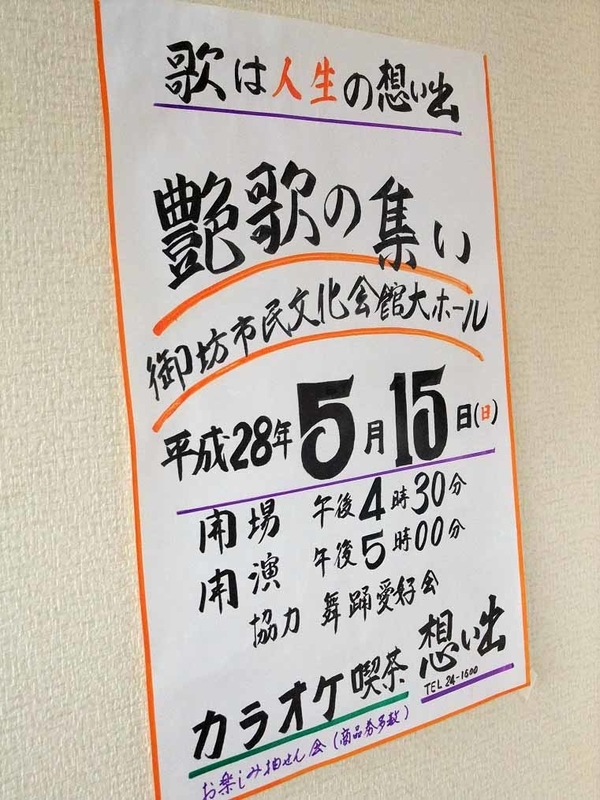 歌は人生の想い出
艶歌の集い
御坊市民文化会館大ホール
平成28年5月15日(日)
開場 午後4時30分
開演 午後5時00分
協力 舞踊愛好会
カラオケ喫茶 想い出
TEL 24-1500
お楽しみ抽せん会(商品券多数)